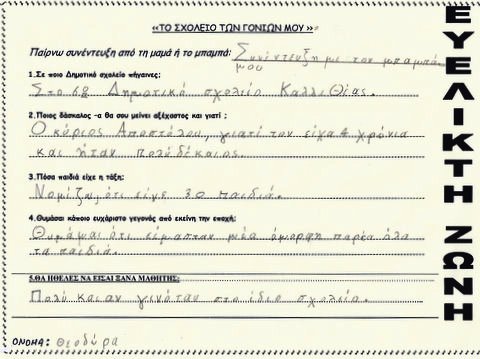 «ΤΟ ΣΧΟΛΕΙΟ ΤΩΝ ΓΟΝΙΩΝ ΜΟΥ»
Παίρνω συνέντευξη από τη μαμά ή το μπαμπά: Συνέντευξη με τον μπαμπά
μου
1.Σε ποιο Δημοτικό σχολείο πήγαινες;
Στο 6ο Δημοτικό σχολείο Καλλιθέας.
2.Ποιος δάσκαλος -α θα σου μείνει αξέχαστος και γιατί ;
Ο κύριος Αποστόλου, γιατί τον είχα 4 χρόνια
και ήταν πολύ δίκαιος.
3.Πόσα παιδιά είχε η τάξη;
Νομίζω, ότι είχε 30 παιδιά.
4.Θυμάσαι κάποιο ευχάριστο γεγονός από εκείνη την εποχή;
Θυμάμαι ότι είμασταν μία όμορφη παρέα όλα
τα παιδιά.
5.ΘΑ ΗΘΕΛΕΣ ΝΑ ΕΙΣΑΙ ΞΑΝΑ ΜΑΘΗΤΗΣ;
Πολύ και αν γινόταν στο ίδιο σχολείο.
ΟΝΟΜΑ: Θεοδώρα
ΕΥΕΛΙΚΤΗ ΖΩΝΗ